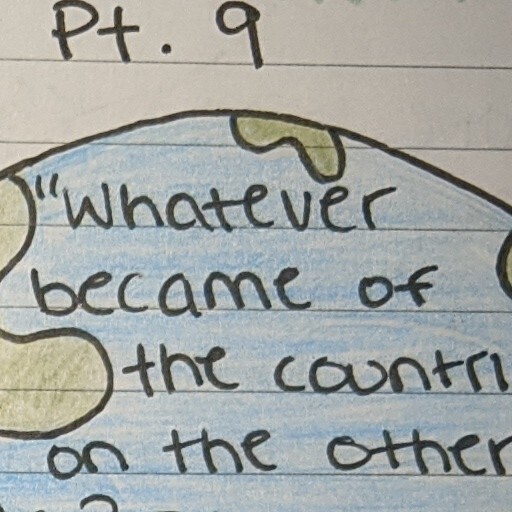 Pt. 9
"Whatever
became of
the countri
on the other